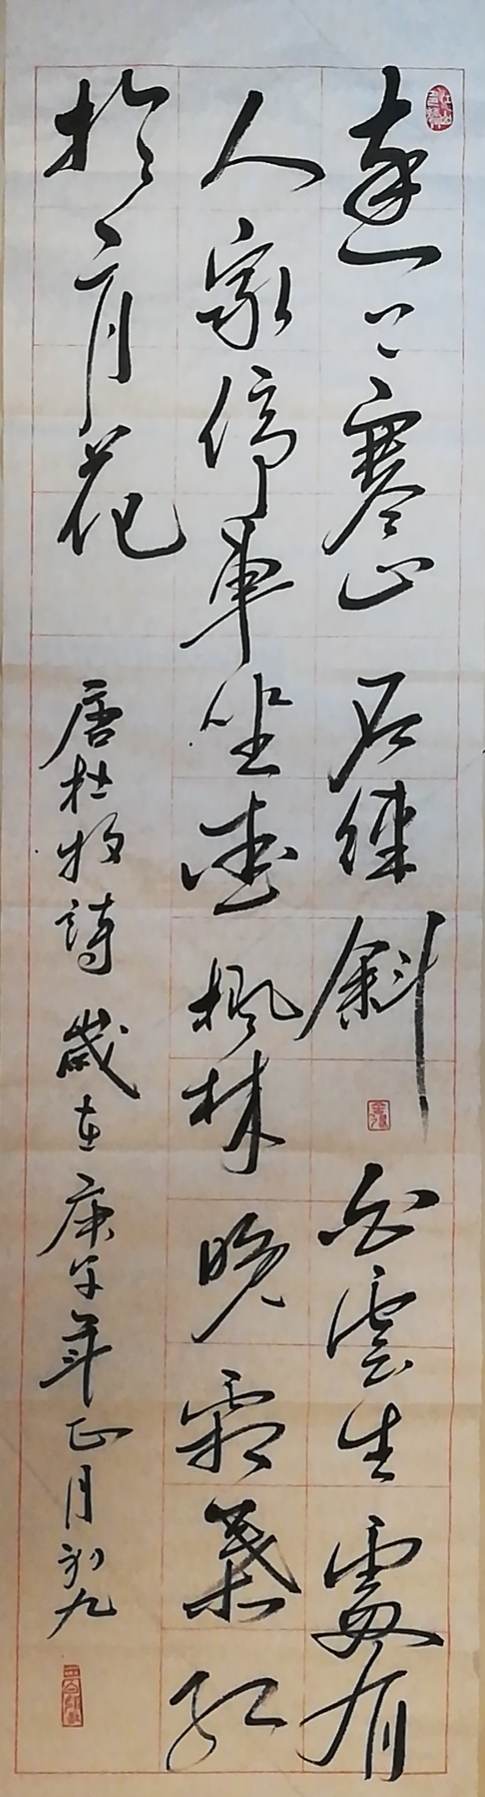 遠上寒山石徑斜白雲生處有
人家停車坐愛楓林晚霜葉紅
於二月花
唐杜牧詩歲在庚子年正月初九